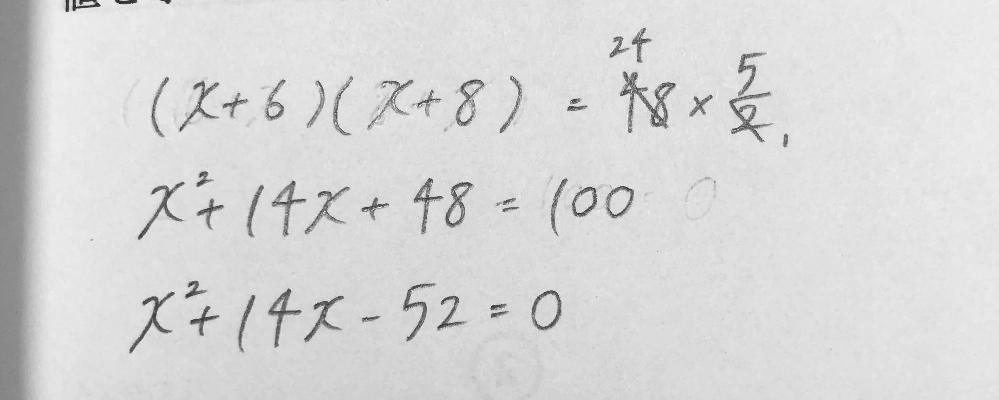 (x+6)(x+8) = 48 × 5/2
24
1
x²+14x+48 = 100
x²+14x-52=0